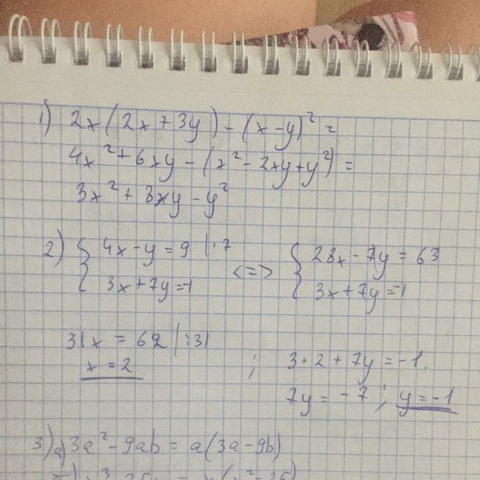 1) 2x(2x+3y) - (x-y)² =
4x² + 6xy - (x² - 2xy + y²) =
3x² + 8xy - y²
2) { 4x - y = 9 |·7 <=> { 28x - 7y = 63
3x + 7y = -1 3x + 7y = -1
31x = 62 | :31
x = 2 ; 3·2 + 7y = -1.
7y = -7 ; y = -1
3) a) 3a² - 9ab = a(3a - 9b)